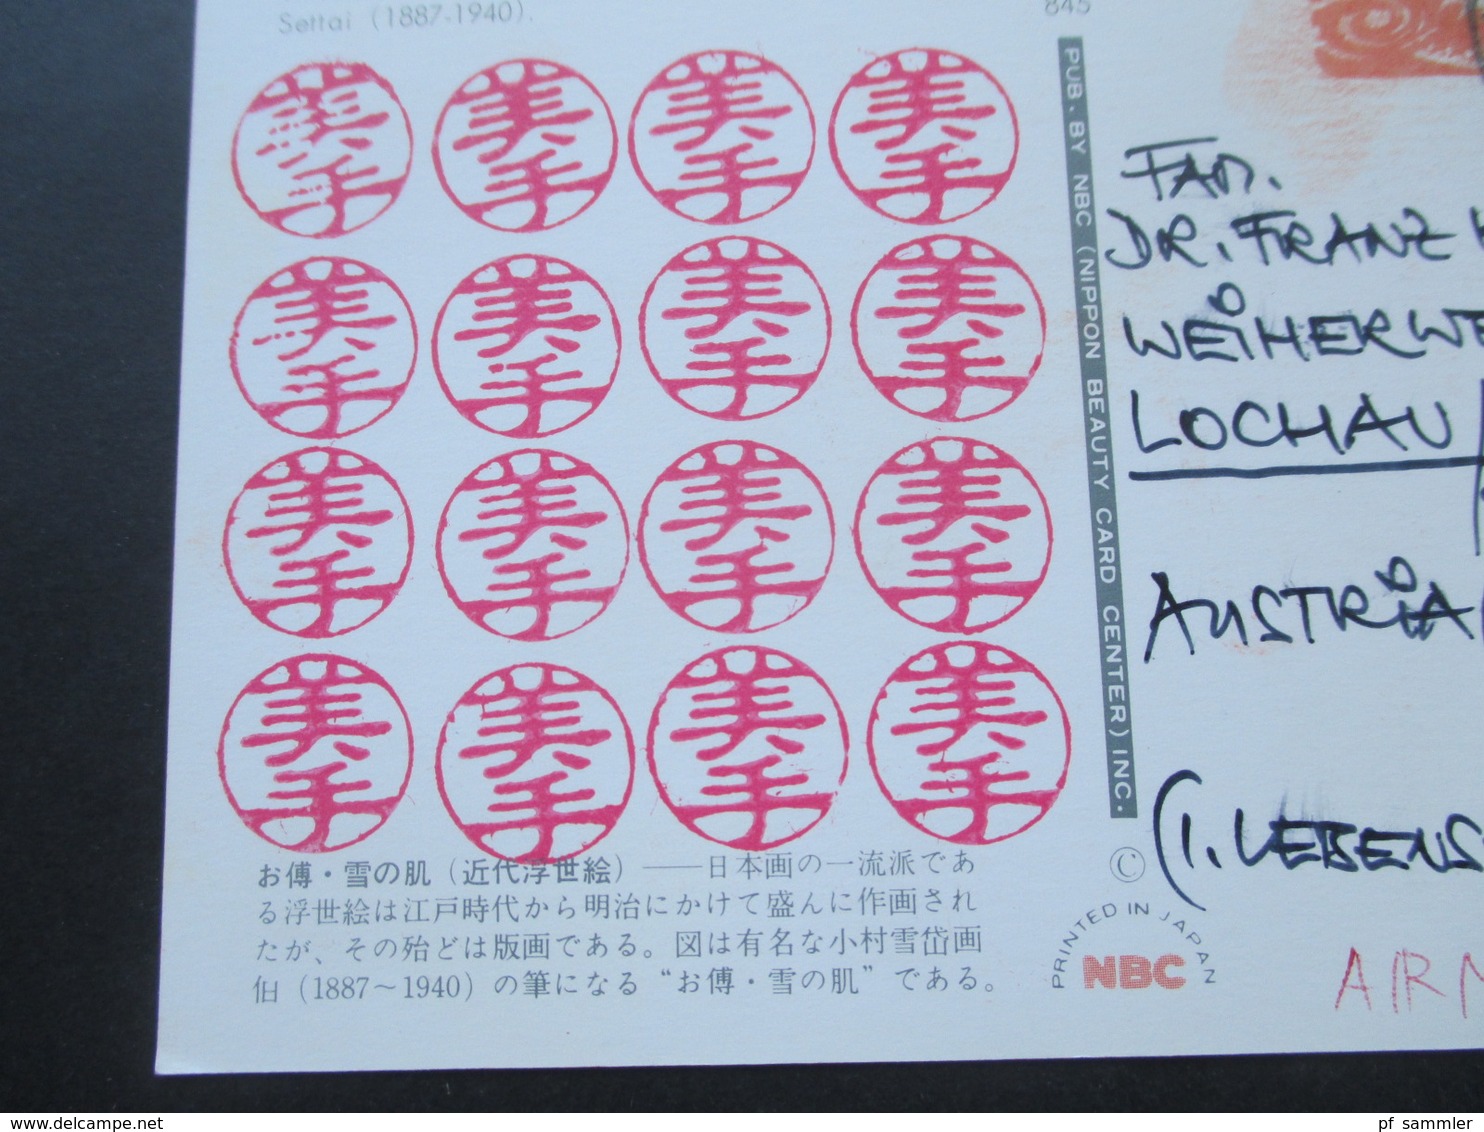 Settai (1887-1940).
845
美手 美手 美手 美手
美手 美手 美手 美手
美手 美手 美手 美手
美手 美手 美手 美手
お傅・雪の肌（近代浮世絵）――日本画の一流派であ
る浮世絵は江戸時代から明治にかけて盛んに作画され
たが、その殆どは版画である。図は有名な小村雪岱画
伯（1887〜1940）の筆になる“お傅・雪の肌”である。
PUB. BY NBC (NIPPON BEAUTY CARD CENTER) INC.
©
PRINTED IN JAPAN
NBC
FAM.
DR. FRANZ
WEIHERWE
LOCHAU
AUSTRIA
(1. LEBENS
AIRM
© www.delcampe.net
pf_sammler